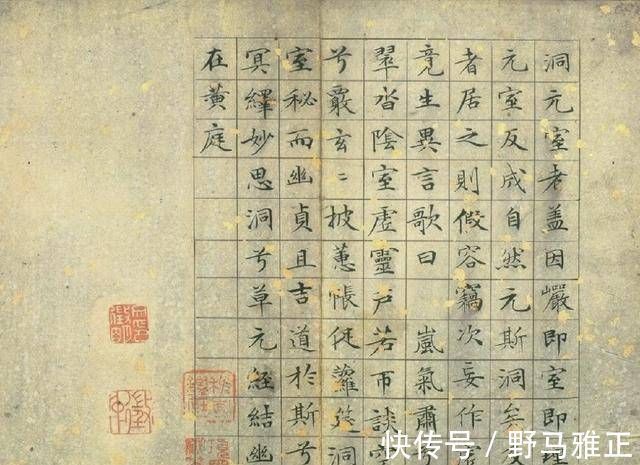 洞元室者盖因巖即室即
元室反成自然元斯洞矣
者居之則假容竊次妄作
竟生異言歌曰 嵐氣肅
翠沓陰室虛靈戶芳而談空
兮覈玄〻披蕙帳促蘿筵洞
室秘而幽貞且吉道於斯兮
冥繹妙思洞兮草元經結幽
在黃庭
快传号 / 野马雅正